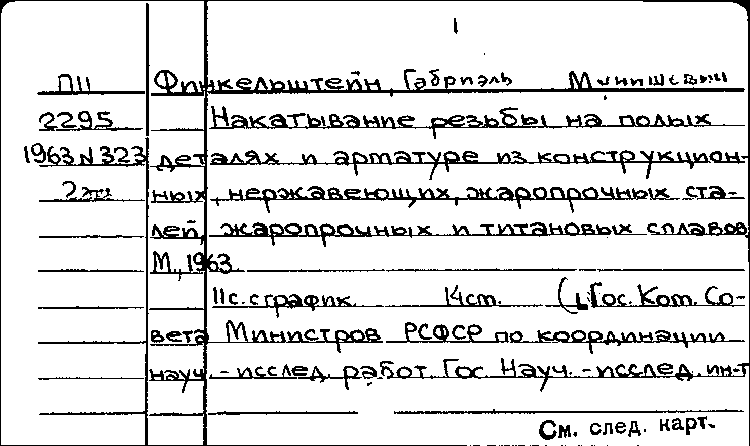 1
П11 Финкельштейн, Габриэль Мунишевич
2295 Накатывание резьбы на полых
1963 N 323 деталях и арматуре из конструкцион-
2 эк ных, нержавеющих, жаропрочных ста-
лей, жаропрочных и титановых сплавов
М., 1963
11 с. с график. 14 см. (Гос. Ком. Со-
вета Министров РСФСР по координации
науч. - исслед. работ. Гос. Науч. - исслед. ин-т
См. след. карт.